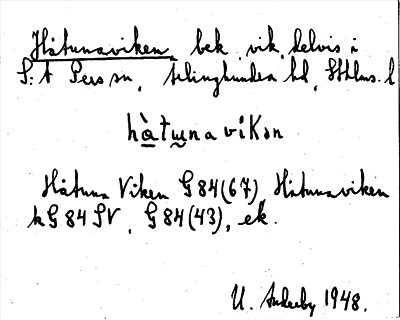 Håtunaviken, bek. vik, delvis i
S:t Pers sn, Ärlinghundra hd, Sthlms. l
hà̱tu̮navikən
Håtuna Viken G84(67) Håtunaviken
kG84SV, G84(43), ek.
U. 1948.